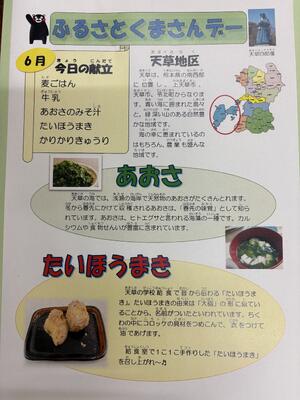 ふるさとくまさんデー
6月
今日の献立
麦ごはん
牛乳
あおさのみそ汁
たいほうまき
かりかりきゅうり
天草地区
天草は、熊本県の南西部
に位置し、上天草市、
天草市、苓北町からなりま
す。青い海に囲まれた島々
と、緑深い山のある自然豊
かな地域です。
海の幸に恵まれているの
はもちろん、農業も盛んな
地域です。
天草四郎像
あおさ
天草の海では、浅瀬の海岸で天然物のあおさがたくさんとれます。
冬から春先にかけて収穫されるあおさは、「春先の味覚」として知ら
れています。あおさは、ヒトエグサと言われる海藻の一種です。カル
シウムや食物せんいが豊富に含まれています。
たいほうまき
天草の学校給食で昔から伝わる「たいほうま
き」。たいほうまきの由来は「大砲」の形に似てい
ることから、名前がついたといわれています。ちく
わの中にコロッケの具材をつめこんで、衣をつけて
油であげます。
給食室で1こ1こ手作りした「たいほうまき」
を召し上がれ～♪